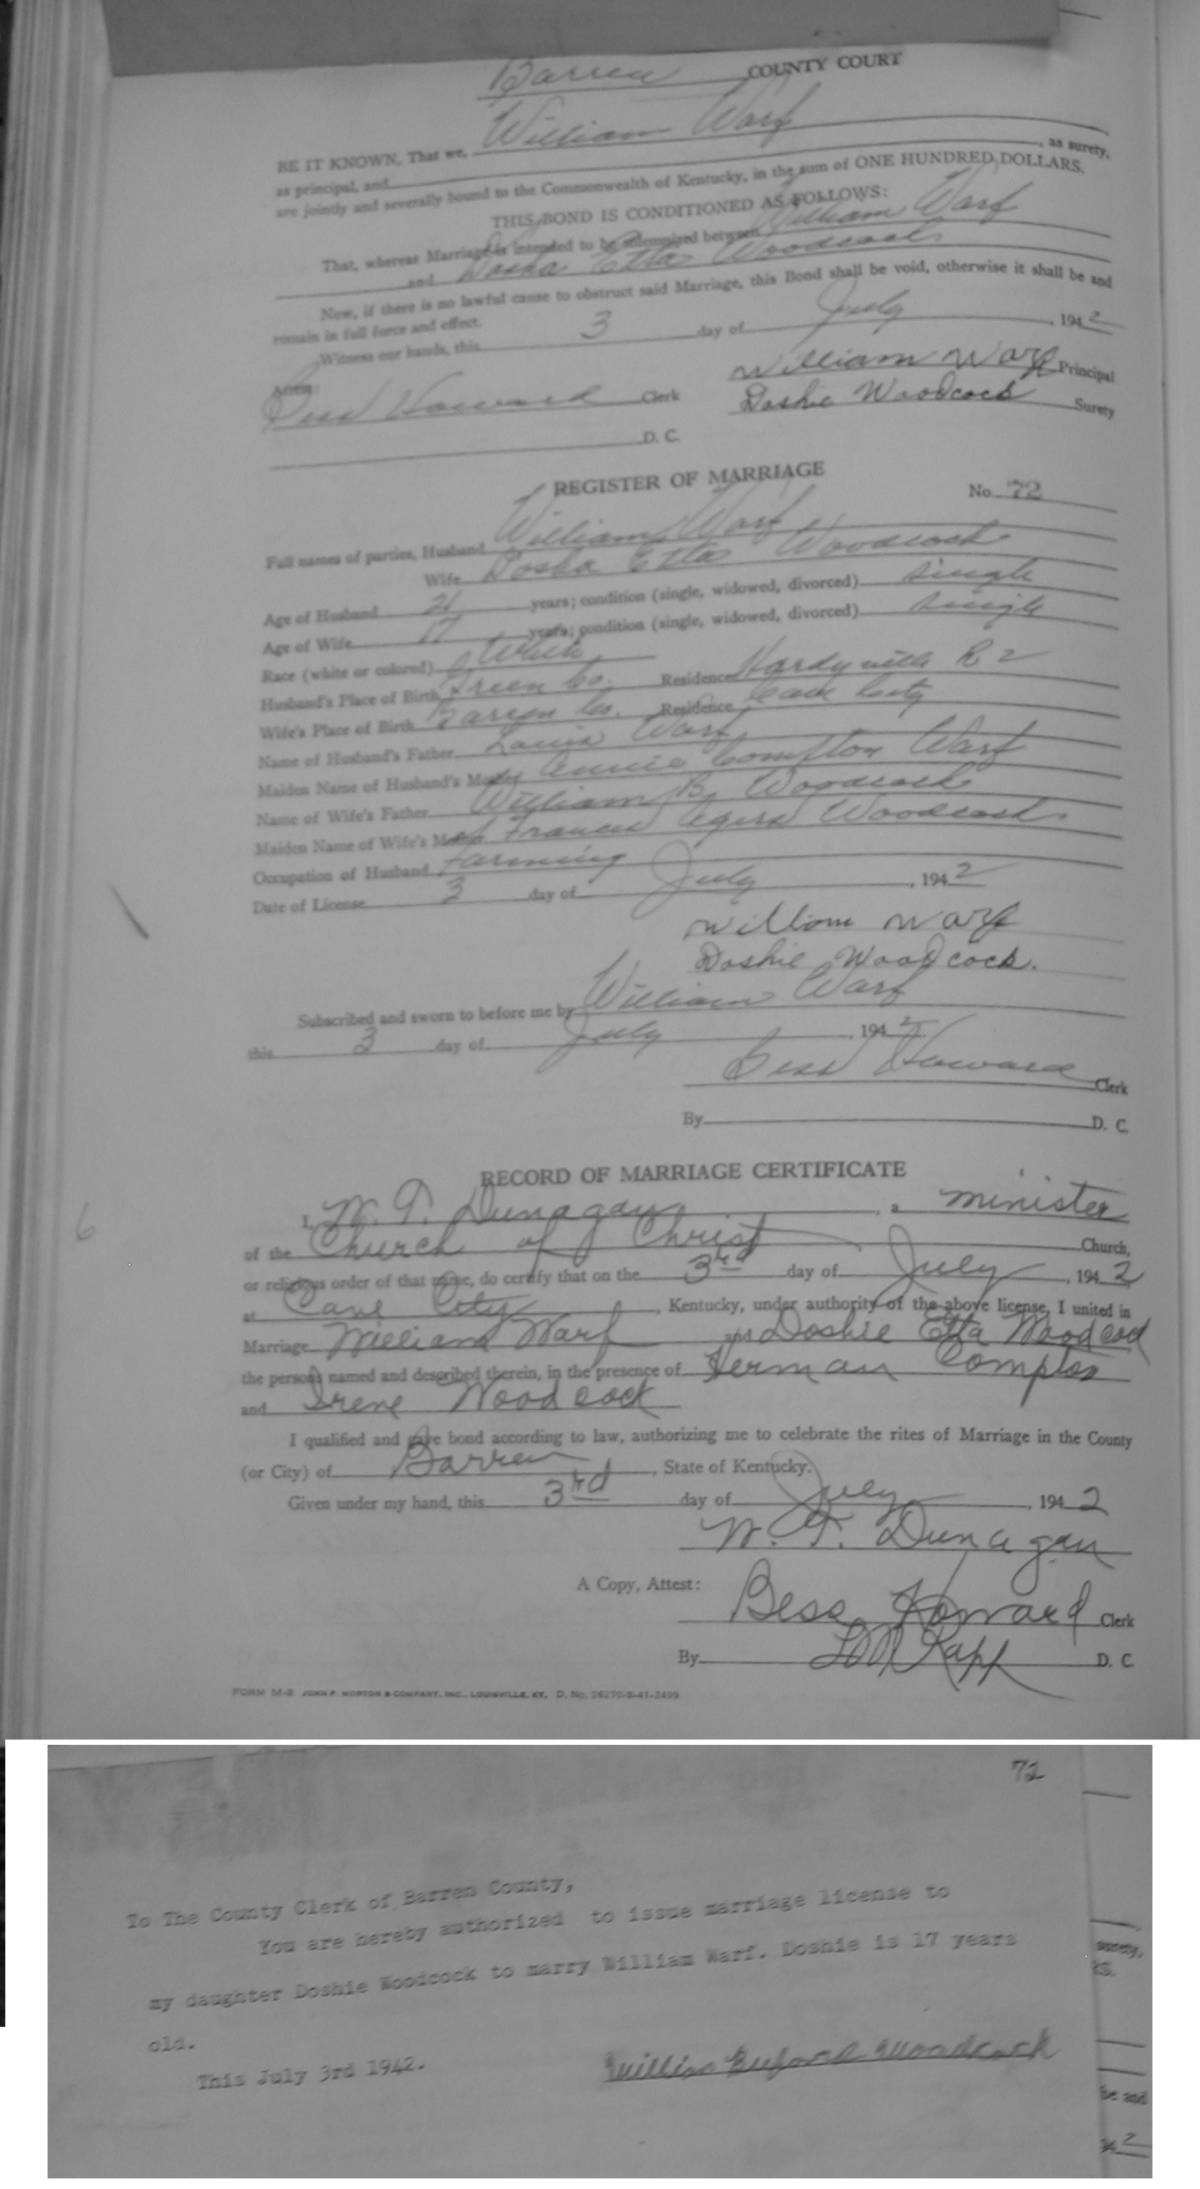 Barren COUNTY COURT
BE IT KNOWN, That we, William Warf
as principal, and , as surety,
are jointly and severally bound to the Commonwealth of Kentucky, in the sum of ONE HUNDRED DOLLARS.
THIS BOND IS CONDITIONED AS FOLLOWS:
That, whereas Marriage is intended to be solemnized between William Warf
and Dosha Etta Woodcock
Now, if there is no lawful cause to obstruct said Marriage, this Bond shall be void, otherwise it shall be and
remain in full force and effect.
Witness our hands, this 3 day of July , 1942
Attest: William Warf Principal
Bess Howard Clerk Doshie Woodcock Surety
D. C.
REGISTER OF MARRIAGE
No. 72
Full names of parties, Husband William Warf
Wife Dosha Etta Woodcock
Age of Husband 21 years; condition (single, widowed, divorced) single
Age of Wife 17 years; condition (single, widowed, divorced) single
Race (white or colored) White
Husband's Place of Birth Green Co. Residence Hardyville R 2
Wife's Place of Birth Barren Co. Residence Cave City
Name of Husband's Father Warf
Maiden Name of Husband's Mother Annie Compton Warf
Name of Wife's Father William B. Woodcock
Maiden Name of Wife's Mother Frances Woodcock
Occupation of Husband Farming
Date of License 3 day of July , 1942
William Warf
Doshie Woodcock.
Subscribed and sworn to before me by William Warf
this 3 day of July , 1942
Bess Howard Clerk
By D. C.
RECORD OF MARRIAGE CERTIFICATE
I, W. T. Dunagan , a minister
of the Church of Christ Church,
or religious order of that name, do certify that on the 3rd day of July , 1942
at Cave City , Kentucky, under authority of the above license, I united in
Marriage William Warf and Doshie Etta Woodcock
the persons named and described therein, in the presence of Herman Compton
and Irene Woodcock
I qualified and gave bond according to law, authorizing me to celebrate the rites of Marriage in the County
(or City) of Barren , State of Kentucky.
Given under my hand, this 3rd day of July , 1942
W. T. Dunagan
A Copy, Attest:
Bess Howard Clerk
By D. C.
FORM M-2 JOHN P. MORTON & COMPANY, INC., LOUISVILLE, KY.
6
72
To The County Clerk of Barren County,
You are hereby authorized to issue marriage license to
my daughter Doshie Woodcock to marry William Warf. Doshie is 17 years
old.
This July 3rd 1942.
Buford Woodcock
surety,
RS.
be and
2